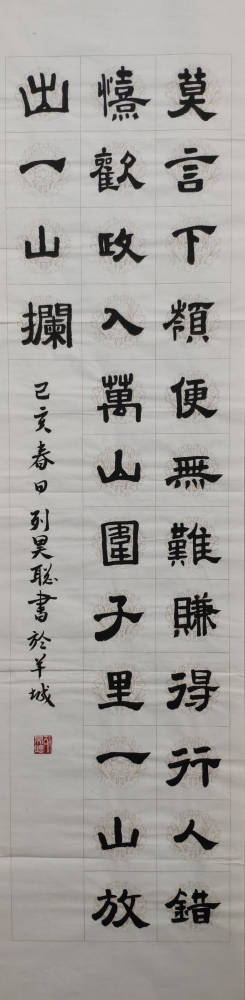 莫言下領便無難賺得行人錯
憘歡政入萬山圍子里一山放
出一山攔
己亥春日列昊聪書於羊城